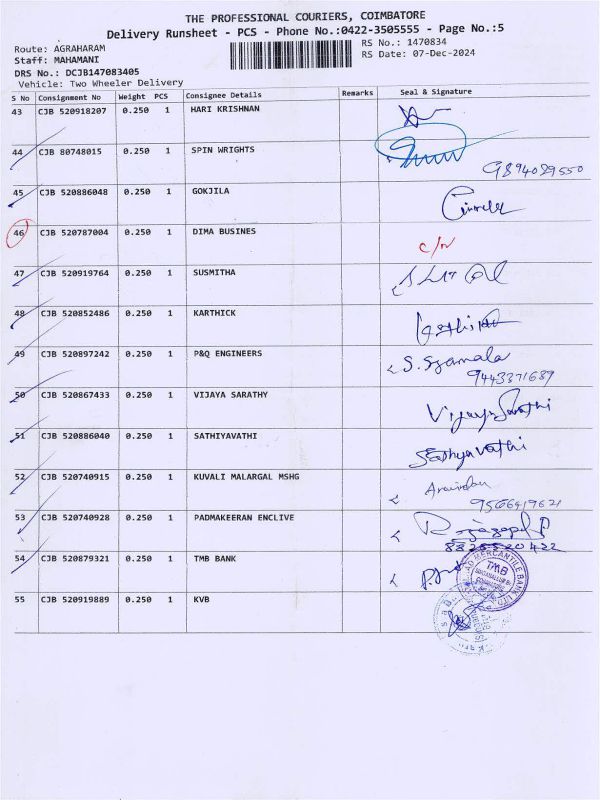 THE PROFESSIONAL COURIERS, COIMBATORE
Delivery Runsheet - PCS - Phone No.:0422-3505555 - Page No.:5
Route: AGRAHARAM
RS No.: 1470834
Staff: MAHAMANI
RS Date: 07-Dec-2024
DRS No.: DCJB147083405
Vehicle: Two Wheeler Delivery
S No Consignment No Weight PCS Consignee Details Remarks Seal & Signature
43 CJB 520918207 0.250 1 HARI KRISHNAN
44 CJB 80748015 0.250 1 SPIN WRIGHTS
9894029550
45 CJB 520886048 0.250 1 GOKJILA
46 CJB 520787004 0.250 1 DIMA BUSINES
47 CJB 520919764 0.250 1 SUSMITHA
48 CJB 520852486 0.250 1 KARTHICK
49 CJB 520897242 0.250 1 P&Q ENGINEERS S. Syamala
9443371689
50 CJB 520867433 0.250 1 VIJAYA SARATHY Vijaya Sarathi
51 CJB 520886040 0.250 1 SATHIYAVATHI Sathyavathi
52 CJB 520740915 0.250 1 KUVALI MALARGAL MSHG
9566419621
53 CJB 520740928 0.250 1 PADMAKEERAN ENCLIVE Rajagopal P
54 CJB 520879321 0.250 1 TMB BANK
TMB
55 CJB 520919889 0.250 1 KVB